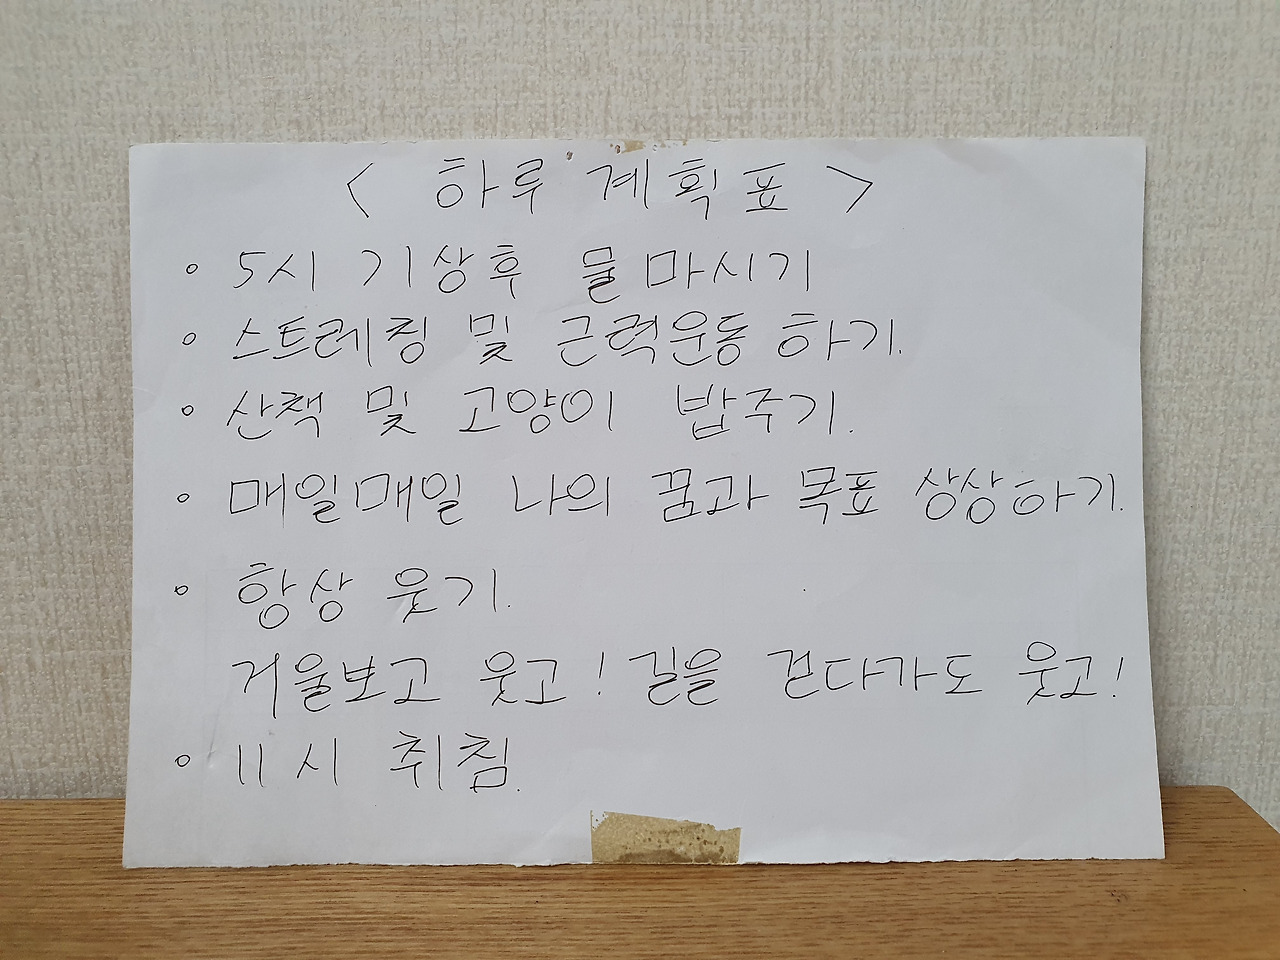 < 하루 계획표 >
◦ 5시 기상후 물마시기
◦ 스트레칭 및 근력운동 하기.
◦ 산책 및 고양이 밥주기.
◦ 매일매일 나의 꿈과 목표 상상하기.
◦ 항상 웃기.
거울보고 웃고! 길을 걷다가도 웃고!
◦ 11시 취침.